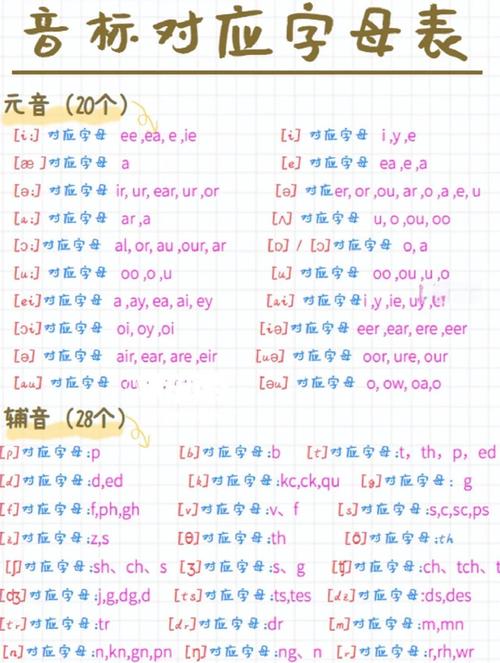 音标对应字母表
元音（20个）
[i:] 对应字母 ee ,ea, e ,ie [i] 对应字母 i ,y ,e
[æ ] 对应字母 a [e] 对应字母 ea ,e ,a
[ə:] 对应字母 ir, ur, ear, ur ,or [ə] 对应er, or ,ou, ar ,o ,a ,e, u
[a:] 对应字母 ar ,a [ʌ] 对应字母 u, o ,ou, oo
[ɔ:] 对应字母 al, or, au ,our, ar [ɒ] / [ɔ]对应字母 o, a
[u:] 对应字母 oo ,o ,u [u] 对应字母 oo ,ou ,u ,o
[ei] 对应字母 a ,ay, ea, ai, ey [ai] 对应字母i ,y ,ie, uy
[ɔi] 对应字母 oi, oy ,oi [iə] 对应字母 eer ,ear, ere ,eer
[ə] 对应字母 air, ear, are ,eir [uə] 对应字母 oor, ure, our
[au] 对应字母 [əu] 对应字母 o, ow, oa,o
辅音（28个）
[p]对应字母:p [b]对应字母:b [t]对应字母:t，th，p，ed
[d]对应字母:d,ed [k]对应字母:kc,ck,qu [g]对应字母：g
[f]对应字母:f,ph,gh [v]对应字母:v、f [s]对应字母:s,c,sc,ps
[z]对应字母:z,s [θ]对应字母:th [ð]对应字母:th
[ʃ]对应字母:sh、ch、s [ʒ]对应字母:s、g [ʧ]对应字母:ch、tch、t
[ʤ]对应字母:j,g,dg,d [ts]对应字母:ts,tes [dz]对应字母:ds,des
[tr]对应字母:tr [dr]对应字母:dr [m]对应字母:m,mn
[n]对应字母:n,kn,gn,pn [ŋ]对应字母:ng、n [r]对应字母:r,rh,wr